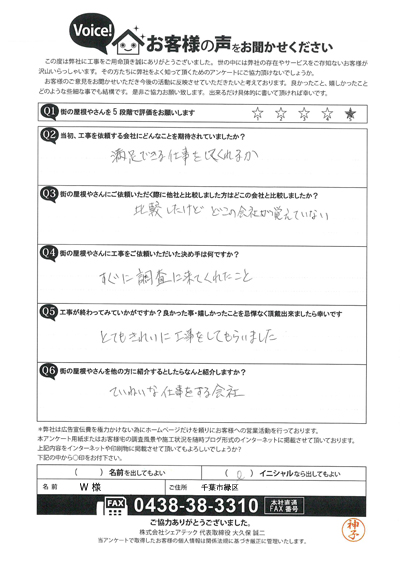 Voice!
お客様の声をお聞かせください
この度は弊社に工事をご用命頂き誠にありがとうございました。世の中には弊社の存在やサービスをご存知ないお客様が
沢山いらっしゃいます。その方たちに弊社をよく知って頂くためのアンケートにご協力頂けないでしょうか。
お客様のご意見をお聞かせいただき今後の活動に反映させていただきたいと考えております。良かったこと、嬉しかったこと
どのような些細な事でも結構です。是非ご協力お願い致します。出来るだけ具体的に書いて頂ければ幸いです。
Q1 街の屋根やさんを5段階で評価をお願いします ☆ ☆ ☆ ☆ ★
Q2 当初、工事を依頼する会社にどんなことを期待されていましたか?
満足できる仕事をしてくれるか
Q3 街の屋根やさんにご依頼いただく際に他社と比較しました方はどこの会社と比較しましたか?
比較したけど どこの会社か覚えていない
Q4 街の屋根やさんに工事をご依頼いただいた決め手は何ですか?
すぐに調査に来てくれたこと
Q5 工事が終わってみていかがですか?良かった事・嬉しかったことを忌憚なく頂戴出来ましたら幸いです
とてもきれいに工事をしてもらいました
Q6 街の屋根やさんを他の方に紹介するとしたらなんと紹介しますか?
ていねいな仕事をする会社
*弊社は広告宣伝費を極力かけない為にホームページだけを頼りにお客様への営業活動を行っております。
本アンケート用紙またはお客様宅の調査風景や施工状況を随時ブログ形式のインターネットに掲載させて頂いております。
上記内容をインターネットや印刷物に掲載させて頂いてもよろしいでしょうか?
下記の中から○印をお付け下さい。
( ) 名前を出してもよい ( ○ ) イニシャルなら出してもよい
名前 W 様 ご住所 千葉市緑区
FAX 0438-38-3310 本社直通 FAX番号
ご協力ありがとうございました。
株式会社シェアテック 代表取締役 大久保 誠二
当アンケートで取得したお客様の個人情報は関係法規に基づき厳正に管理いたします。
神子